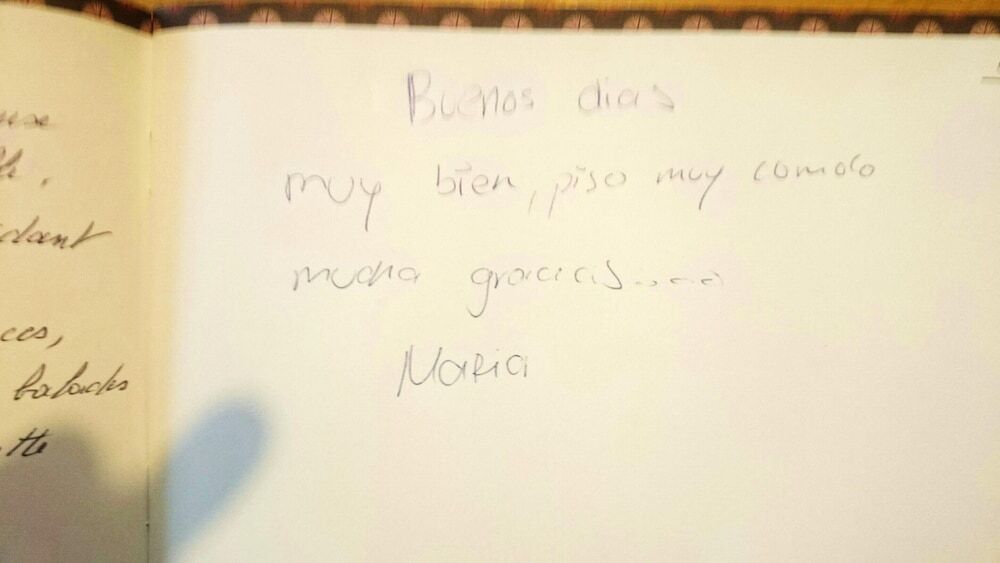 dant
balades
Buenos dias
muy bien, piso muy comodo
mucha gracias.....
Maria